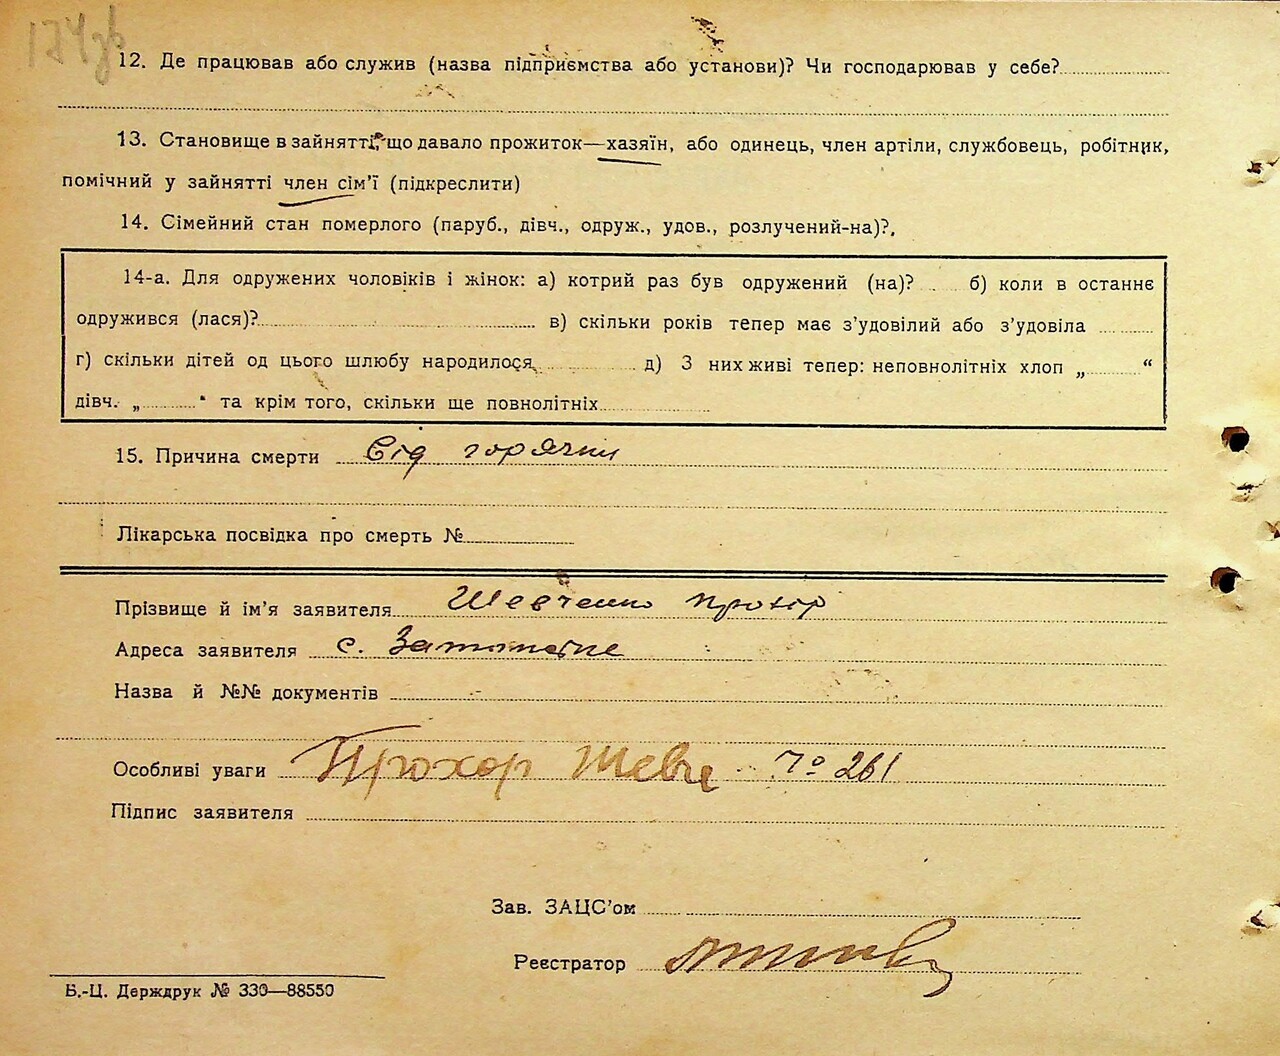 174зв
12. Де працював або служив (назва підприємства або установи)? Чи господарював у себе?
13. Становище в зайнятті, що давало прожиток—хазяїн, або одинець, член артіли, службовець, робітник,
помічний у зайнятті член сім’ї (підкреслити)
14. Сімейний стан померлого (паруб., дівч., одруж., удов., розлучений-на)?
14-а. Для одружених чоловіків і жінок: а) котрий раз був одружений (на)? б) коли в останнє
одружився (лася)? в) скільки років тепер має з’удовілий або з’удовіла
г) скільки дітей од цього шлюбу народилося д) З них живі тепер: неповнолітніх хлоп „ “
дівч. „ “ та крім того, скільки ще повнолітніх
15. Причина смерти Від горячки
Лікарська посвідка про смерть №
Прізвище й ім’я заявителя Шевченко Прохір
Адреса заявителя с.
Назва й №№ документів
Особливі уваги Прохор Шевче 261
Підпис заявителя
Зав. ЗАЦС’ом
Реєстратор
Б.-Ц. Держдрук № 330—88550